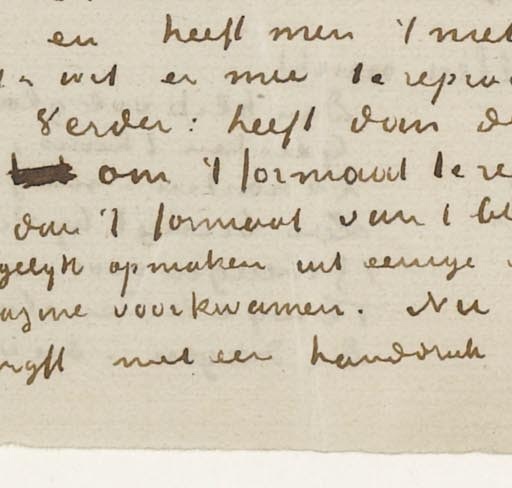 en heeft men 't met
wil er mee te repro
Verder: heeft dan d
om 't formaat te re
dan 't formaat van 't bl
gelijk opmaken uit eenige
azme voorkwamen. Nu
met een handdruk